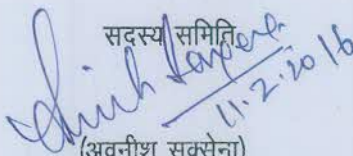 सदस्य समिति
11.2.2016
(अवनीश सक्सेना)